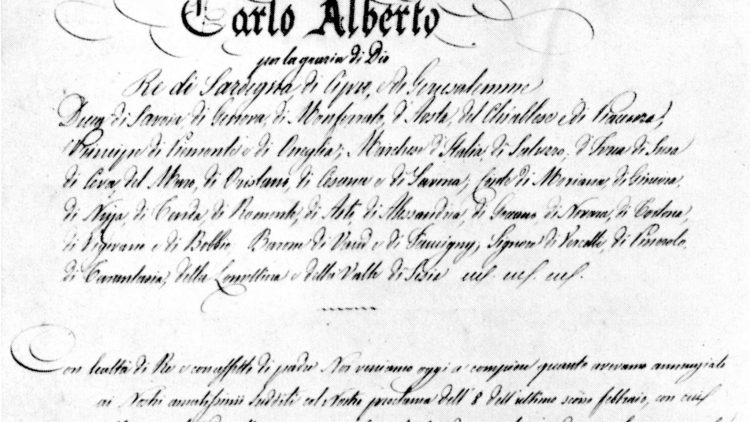 Carlo Alberto
per la grazia di Dio
Re di Sardegna, di Cipro, e di Gerusalemme
Duca di Savoia, di Genova, di Monferrato, d'Aosta, del Chiablese e di Piacenza;
Principe di Piemonte e di Oneglia; Marchese d'Italia, di Saluzzo, d'Ivrea, di Susa
di Ceva, del Maro, di Oristano, di Cesana e di Savona; Conte di Moriana, di Ginevra,
di Nizza, di Tenda, di Romonte, di Asti, di Alessandria, di Goceano, di Novara, di Tortona,
di Vigevano e di Bobbio; Barone di Vaud e di Faucigny; Signore di Vercelli, di Pinerolo
di Tarantasia, della Lomellina e della Valle di Sesia
Con lealtà di Re e con affetto di padre Noi veniamo oggi a compiere quanto avevamo annunziato
ai Nostri amatissimi sudditi col Nostro proclama dell'8 dell'ultimo scorso febbraio, con cui